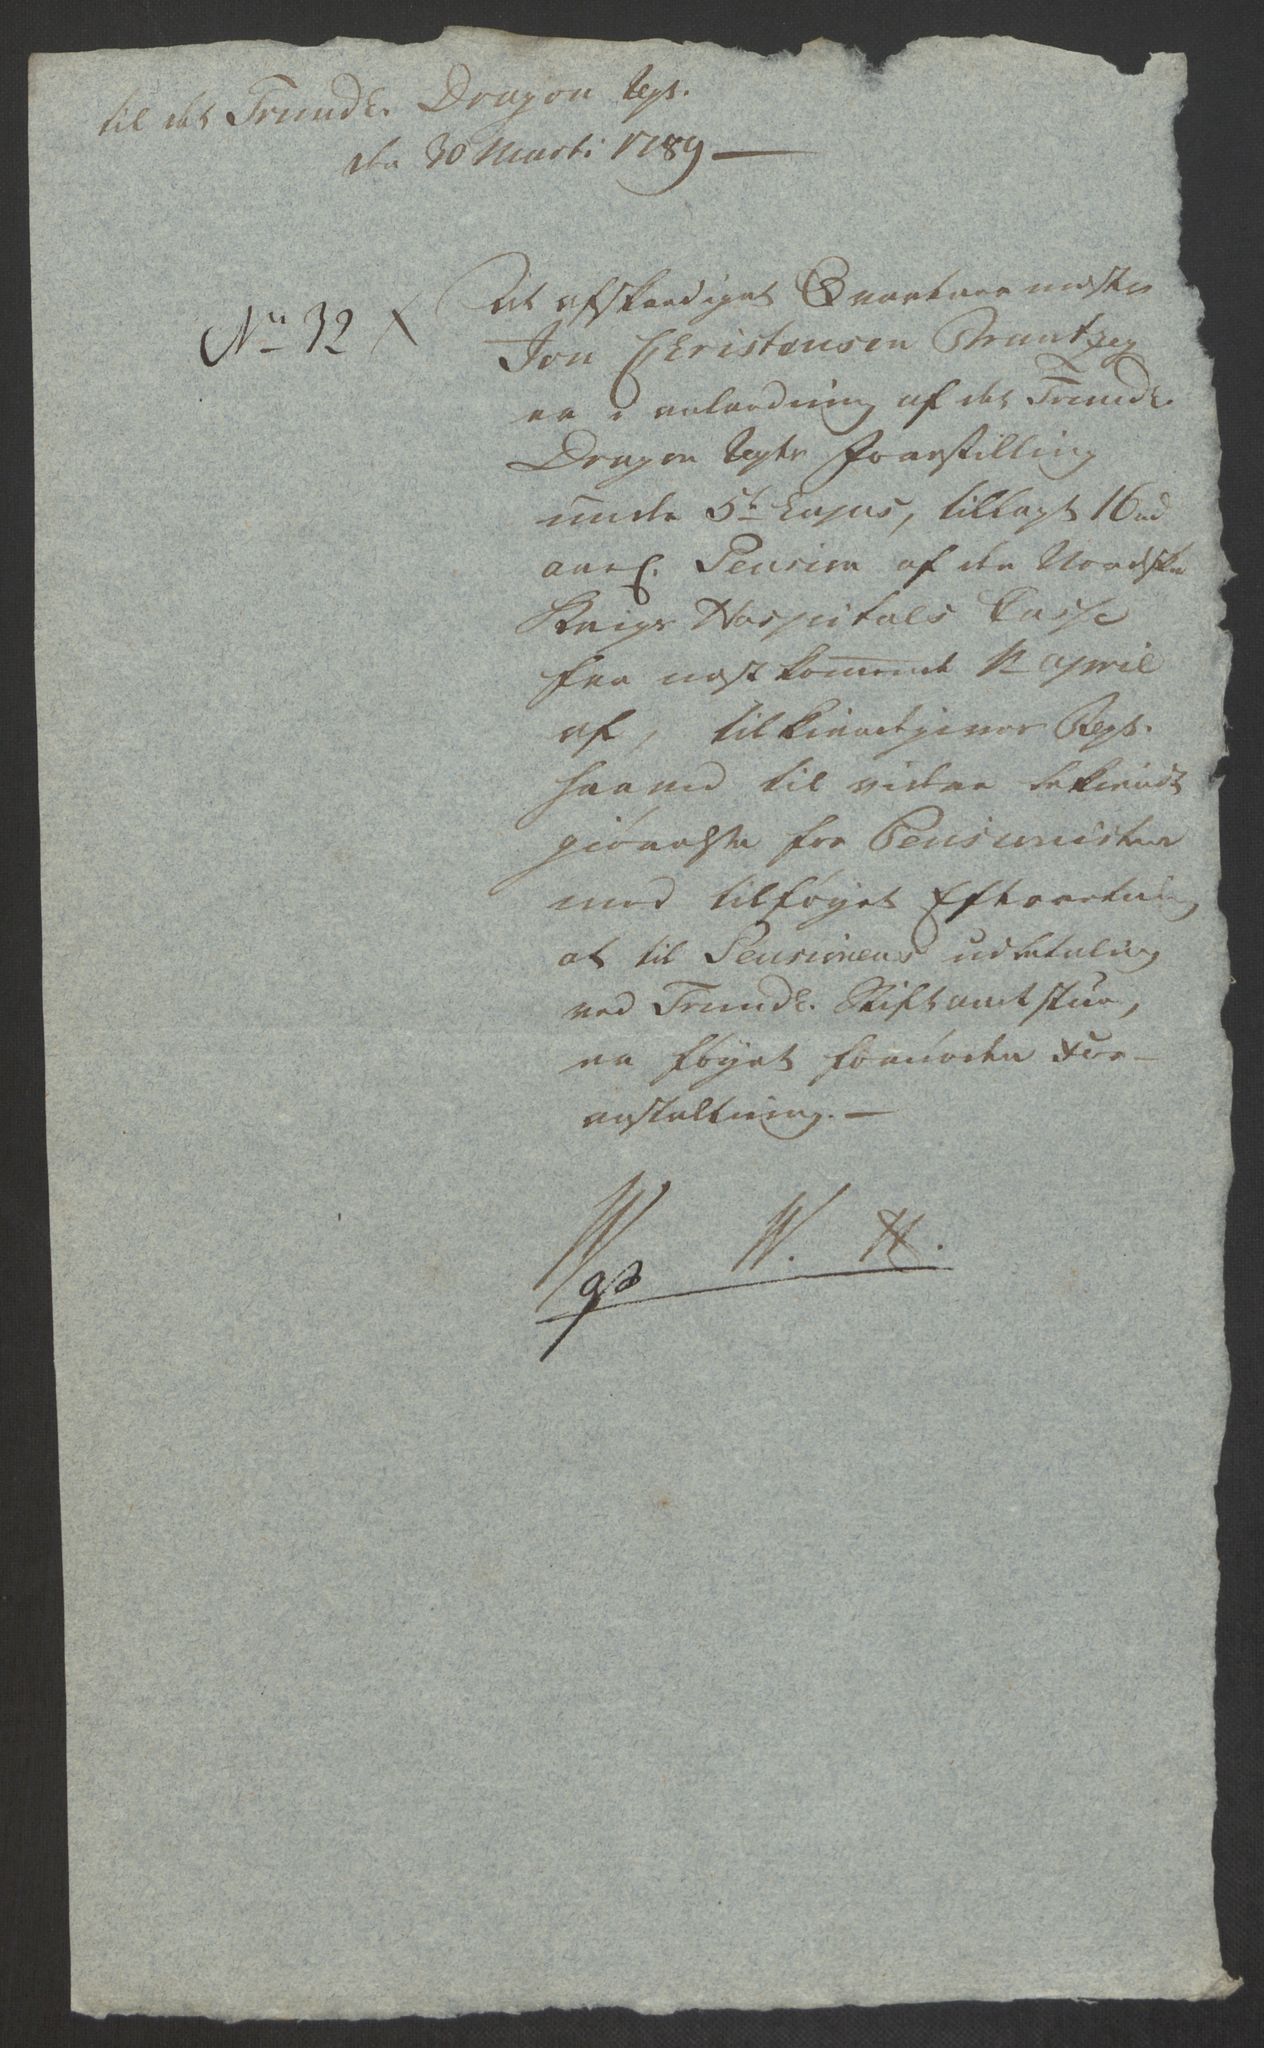 til det Trundh. Dragon Regt.
den 30 Marti 1789 —
No 32 X
At afskeediget Qvarteermester
Jon Christensen Brantzeg
er i anledning af det Trundh.
Dragon Regts Foerstilling
under 5te hujus, tillagt 16 rd
aarl. Pension af den Nordske
Krigs Hospitals Casse
fra nestkommende 1t april
af, tilkiendgives Regt.
saavel til videre bekiendt
giørelse for Pensionisten
med tilføyet Efterretning
at til Pensionens udbetaling
ved Trundh. Stiftamtstue,
er føyet fornøden For-
anstaltning. —
W. H.